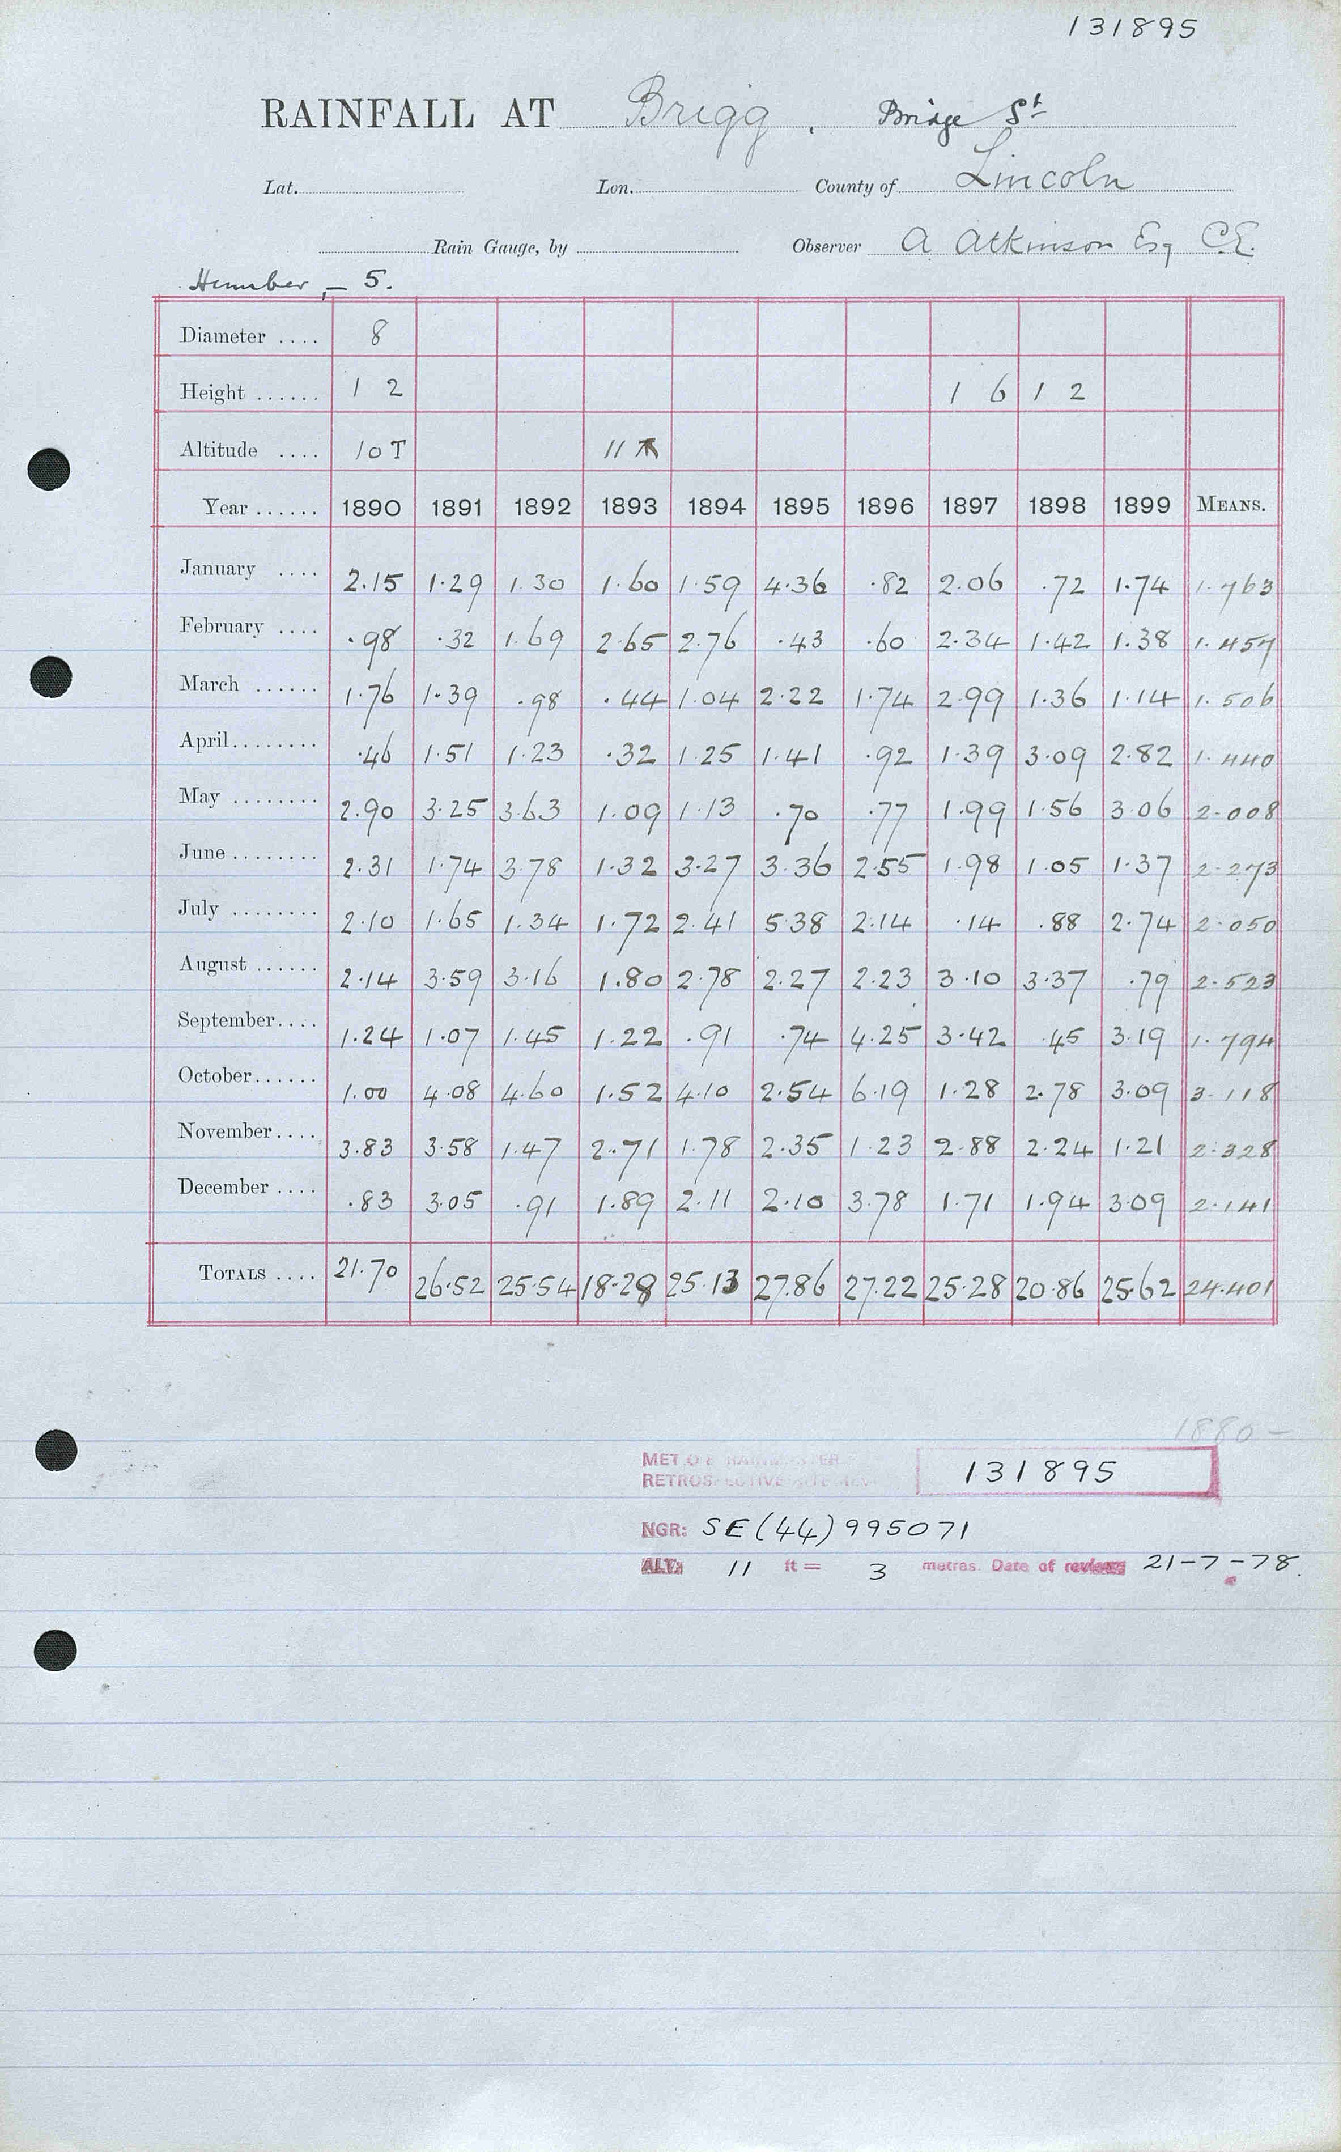 131895
RAINFALL AT Brigg, Bridge St
Lat. Lon. County of Lincoln
Rain Gauge, by Observer A Atkinson Esq C.E.
Humber, – 5.
Diameter .... 8
Height ...... 1 2 1 6 1 2
Altitude .... 10 T 11
Year ...... 1890 1891 1892 1893 1894 1895 1896 1897 1898 1899 MEANS.
January .... 2.15 1.29 1.30 1.60 1.59 4.36 .82 2.06 .72 1.74 1.763
February .... .98 .32 1.69 2.65 2.76 .43 .60 2.34 1.42 1.38 1.457
March ...... 1.76 1.39 .98 .44 1.04 2.22 1.74 2.99 1.36 1.14 1.506
April........ .46 1.51 1.23 .32 1.25 1.41 .92 1.39 3.09 2.82 1.440
May ........ 2.90 3.25 3.63 1.09 1.13 .70 .77 1.99 1.56 3.06 2.008
June ........ 2.31 1.74 3.78 1.32 3.27 3.36 2.55 1.98 1.05 1.37 2.273
July ........ 2.10 1.65 1.34 1.72 2.41 5.38 2.14 .14 .88 2.74 2.050
August ...... 2.14 3.59 3.16 1.80 2.78 2.27 2.23 3.10 3.37 .79 2.523
September.... 1.24 1.07 1.45 1.22 .91 .74 4.25 3.42 .45 3.19 1.794
October...... 1.00 4.08 4.60 1.52 4.10 2.54 6.19 1.28 2.78 3.09 3.118
November.... 3.83 3.58 1.47 2.71 1.78 2.35 1.23 2.88 2.24 1.21 2.328
December .... .83 3.05 .91 1.89 2.11 2.10 3.78 1.71 1.94 3.09 2.141
TOTALS .... 21.70 26.52 25.54 18.28 25.13 27.86 27.22 25.28 20.86 25.62 24.401
1880 –
MET.O.8
RETROSPECTIVE
131895
NGR: SE(44)995071
ALT: 11 ft = 3 metres. Date of review 21-7-78.